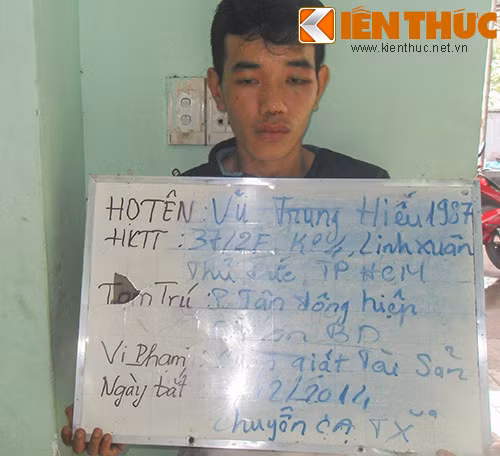 KIẾN THỨC
www.kienthuc.net.vn
HỌ TÊN: Vũ Trung Hiếu 1987
HKTT: 37/2F Linh xuân
Thủ Đức TP HCM
Tạm Trú: P. Tân đông hiệp
BD
Vi Phạm: giật Tài Sản
Ngày bắt 12/2014
chuyển CA TX